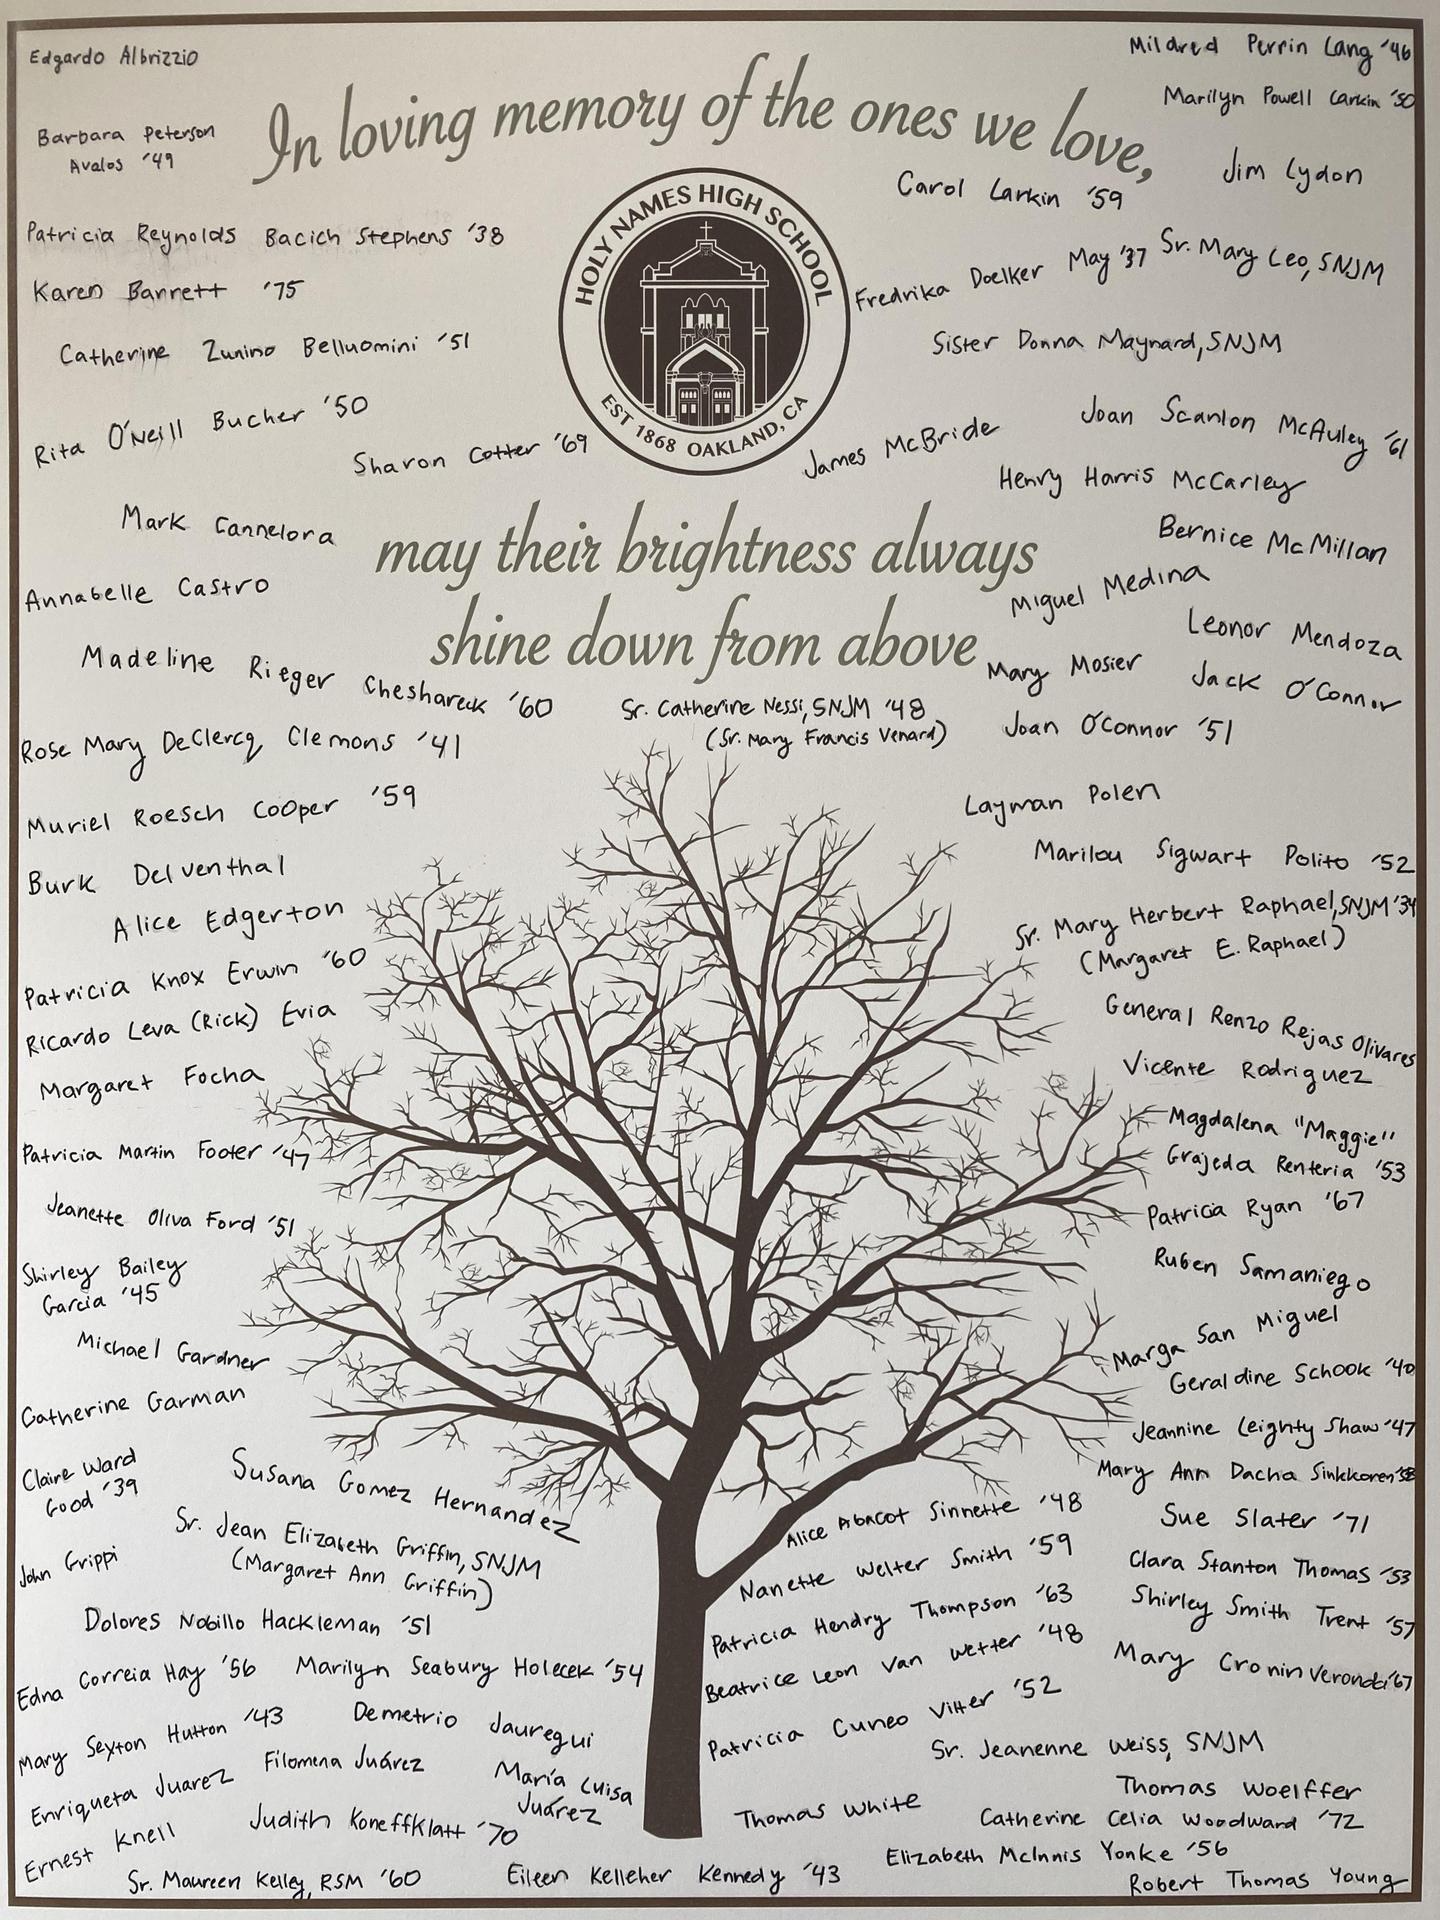 In loving memory of the ones we love,
HOLY NAMES HIGH SCHOOL
EST 1868 OAKLAND, CA
may their brightness always
shine down from above
Edgardo Albrizzio
Barbara Peterson
Avalos '49
Patricia Reynolds Bacich Stephens '38
Karen Barrett '75
Catherine Zunino Belluomini '51
Rita O'Neill Bucher '50
Sharon Cotter '69
Mark Cannelora
Annabelle Castro
Madeline Rieger Cheshareck '60
Rose Mary DeClercq Clemons '41
Muriel Roesch Cooper '59
Burk Delventhal
Alice Edgerton
Patricia Knox Erwin '60
Ricardo Leva (Rick) Evia
Margaret Focha
Patricia Martin Footer '47
Jeanette Oliva Ford '51
Shirley Bailey
Garcia '45
Michael Gardner
Catherine Garman
Claire Ward
Good '39
Susana Gomez Hernandez
Sr. Jean Elizabeth Griffin, SNJM
(Margaret Ann Griffin)
John Grippi
Dolores Nobillo Hackleman '51
Edna Correia Hay '56
Marilyn Seabury Holecek '54
Mary Sexton Hutton '43
Demetrio Jauregui
Enriqueta Juarez
Filomena Juárez
María Luisa
Juárez
Ernest Knell
Judith Koneffklatt '70
Sr. Maureen Kelley, RSM '60
Eileen Kelleher Kennedy '43
Mildred Perrin Lang '46
Marilyn Powell Larkin '50
Carol Larkin '59
Jim Lydon
Fredrika Doelker May '37
Sr. Mary Leo, SNJM
Sister Donna Maynard, SNJM
James McBride
Joan Scanlon McAuley '61
Henry Harris McCarley
Bernice McMillan
Miguel Medina
Leonor Mendoza
Mary Mosier
Jack O'Connor
Sr. Catherine Nessi, SNJM '48
(Sr. Mary Francis Venard)
Joan O'Connor '51
Layman Polen
Marilou Sigwart Polito '52
Sr. Mary Herbert Raphael, SNJM '34
(Margaret E. Raphael)
General Renzo Rejas Olivares
Vicente Rodriguez
Magdalena "Maggie"
Grajeda Renteria '53
Patricia Ryan '67
Ruben Samaniego
Marga San Miguel
Geraldine Schook '40
Jeannine Leighty Shaw '47
Mary Ann Dacha Sinkkonen
Alice Abacot Sinnette '48
Sue Slater '71
Nanette Welter Smith '59
Clara Stanton Thomas '53
Patricia Hendry Thompson '63
Shirley Smith Trent '57
Beatrice Leon Van Wetter '48
Mary Cronin '67
Patricia Cuneo Vitter '52
Sr. Jeanenne Weiss, SNJM
Thomas White
Thomas Woelffer
Catherine Celia Woodward '72
Elizabeth McInnis Yonke '56
Robert Thomas Young